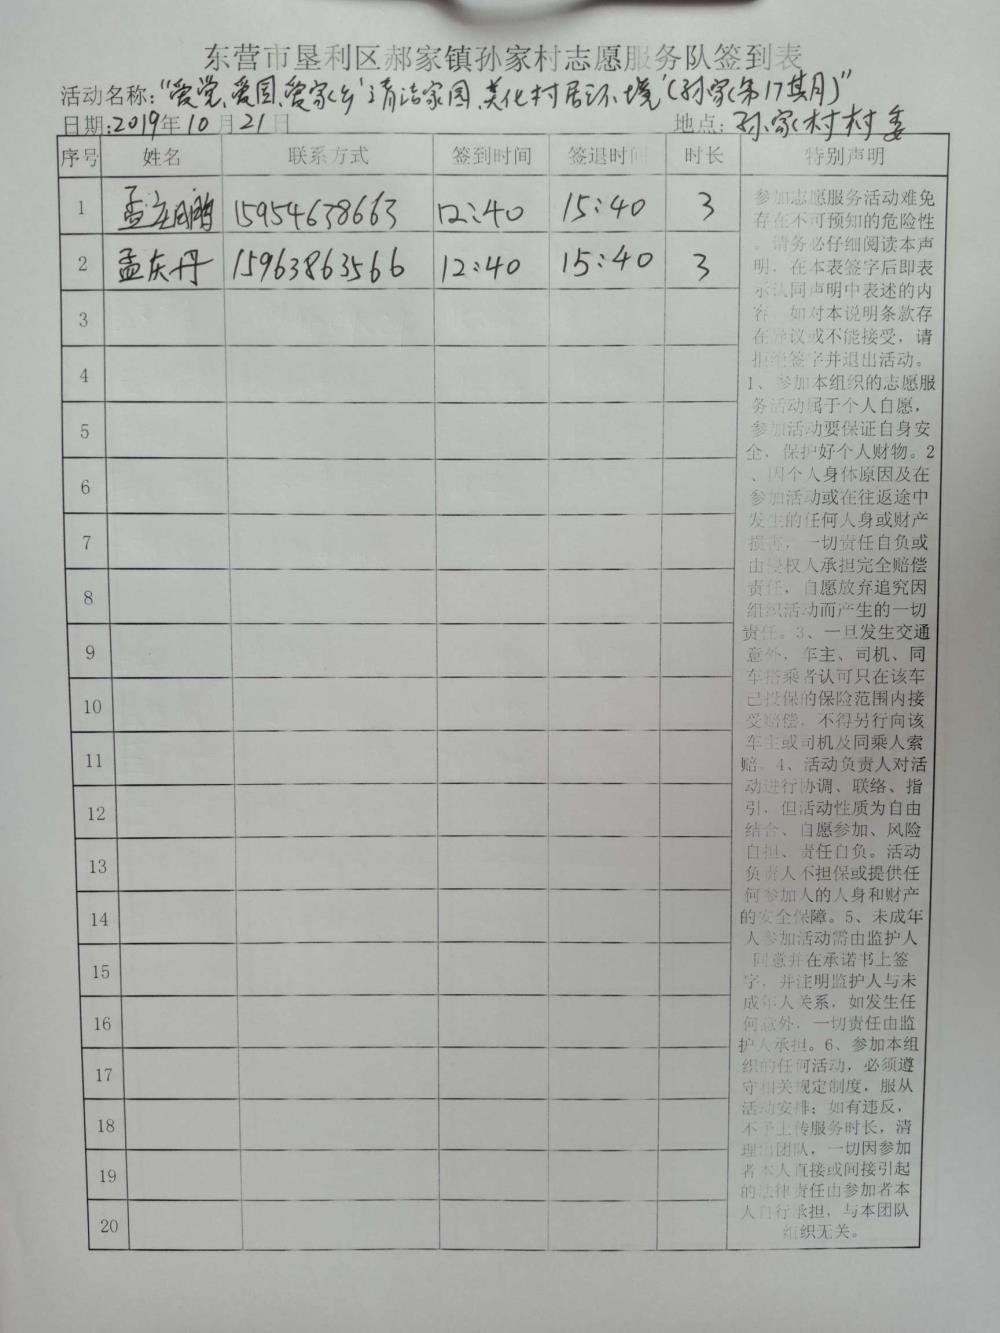 东营市垦利区郝家镇孙家村志愿服务队签到表
活动名称:"爱党、爱国、爱家乡'清洁家园、美化村居环境'(孙家第17期)"
日期:2019年10月21日 地点:孙家村村委
序号 姓名 联系方式 签到时间 签退时间 时长 特别声明
1 孟庆鹏 15954638663 12:40 15:40 3
2 孟庆丹 15963863566 12:40 15:40 3
3
4
5
6
7
8
9
10
11
12
13
14
15
16
17
18
19
20
参加志愿服务活动难免
存在不可预知的危险性
。请务必仔细阅读本声
明，在本表签字后即表
示认同声明中表述的内
容。如对本说明条款存
在异议或不能接受，请
拒绝签字并退出活动。
1、参加本组织的志愿服
务活动属于个人自愿，
参加活动要保证自身安
全，保护好个人财物。2
、因个人身体原因及在
参加活动或在往返途中
发生的任何人身或财产
损害，一切责任自负或
由侵权人承担完全赔偿
责任，自愿放弃追究因
组织活动而产生的一切
责任。3、一旦发生交通
意外，车主、司机、同
车搭乘者认可只在该车
已投保的保险范围内接
受赔偿，不得另行向该
车主或司机及同乘人索
赔。4、活动负责人对活
动进行协调、联络、指
引，但活动性质为自由
结合、自愿参加、风险
自担、责任自负。活动
负责人不担保或提供任
何参加人的人身和财产
的安全保障。5、未成年
人参加活动需由监护人
同意并在承诺书上签
字，并注明监护人与未
成年人关系，如发生任
何意外，一切责任由监
护人承担。6、参加本组
织的任何活动，必须遵
守相关规定制度，服从
活动安排；如有违反，
不予上传服务时长，清
理出团队，一切因参加
者本人直接或间接引起
的法律责任由参加者本
人自行承担，与本团队
组织无关。